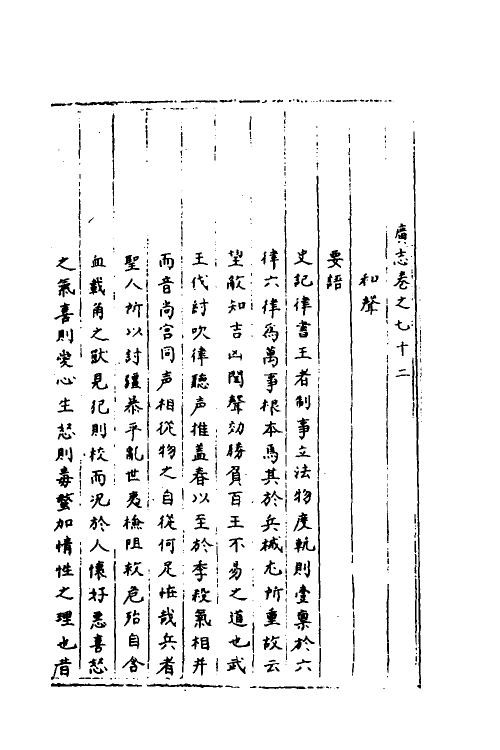 廣志卷之七十二
和聲
要語
史記律書王者制事立法物度軌則壹稟於六
律六律爲萬事根本焉其於兵械尤所重故云
望敵知吉凶聞聲効勝負百王不易之道也武
王伐紂吹律聽声推孟春以至於季殺氣相并
而音尚宮同声相從物之自從何足恠哉兵者
聖人所以討彊暴平亂世夷險阻救危殆自含
血戴角之獸見犯則校而況於人懷好惡喜怒
之氣喜則愛心生怒則毒螫加情性之理也昔